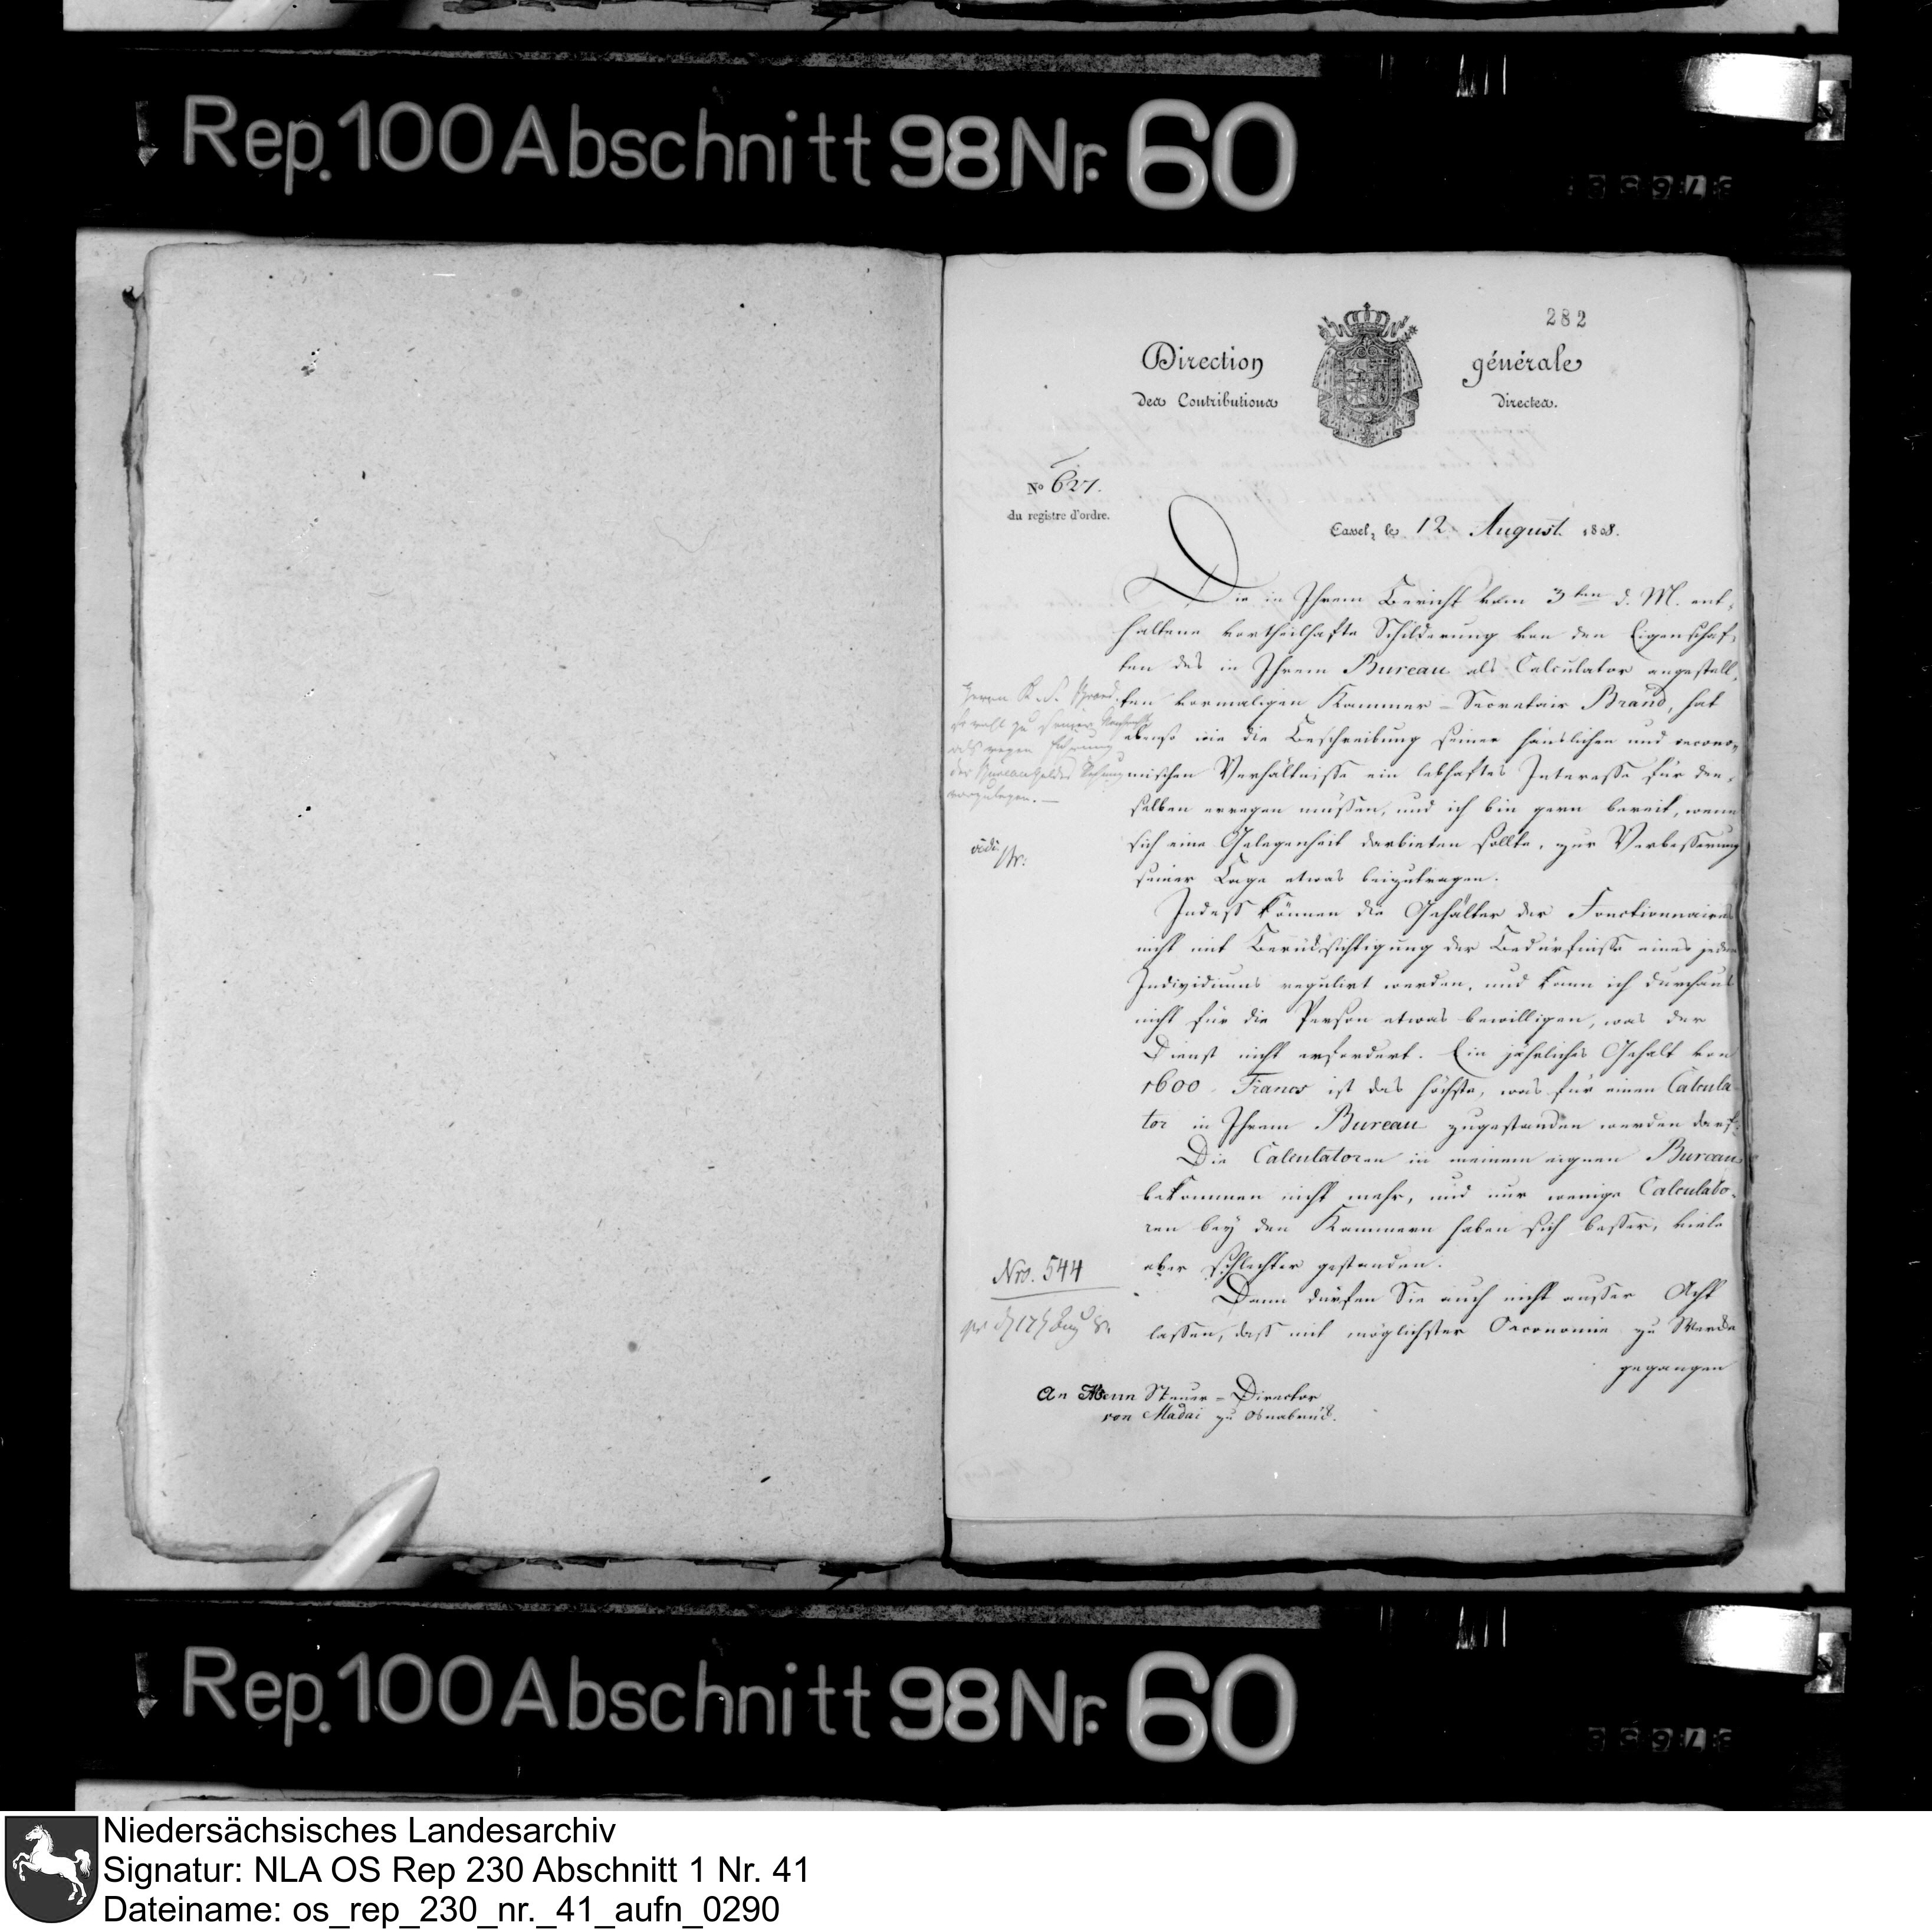 Rep. 100 Abschnitt 98 Nr. 60
282
Direction générale
des Contributions directes.
No 627.
du registre d'ordre.
Cassel, le 12 August. 1808.
Die in Ihrem Bericht vom 3ten d. M. ent-
haltene vortheilhafte Schilderung von den Eigenschaf-
ten des in Ihrem Bureau als Calculator angestell-
ten vormaligen Kammer-Secretair Brand, hat
ebenso wie die Beschreibung seiner häuslichen und oecono-
mischen Verhältnisse ein lebhaftes Interesse für den-
selben erregen müssen, und ich bin gern bereit, wenn
sich eine Gelegenheit darbieten sollte, zur Verbesserung
seiner Lage etwas beizutragen.
Indess können die Gehälter der Fonctionnaires
nicht mit Berücksichtigung der Bedürfnisse eines jeden
Individuums regulirt werden, und kann ich durchaus
nicht für die Person etwas bewilligen, was der
Dienst nicht erfordert. Ein jährliches Gehalt von
1600 Francs ist das höchste, was für einen Calcula-
tor in Ihrem Bureau zugestanden werden darf.
Die Calculatoren in meinem eignen Bureau
bekommen nicht mehr, und nur wenige Calculato-
ren bey den Kammern haben sich besser, viele
aber schlechter gestanden.
Dann dürfen Sie auch nicht ausser Acht
lassen, dass mit möglichster Oeconomie zu Werke
gegangen
Herrn K. S. Brand
zu seiner
als wegen
der
vorzulegen.
vidi
Nro. 544
An Herrn Steuer-Director
von Madai zu Osnabrück.
Rep. 100 Abschnitt 98 Nr. 60
Niedersächsisches Landesarchiv
Signatur: NLA OS Rep 230 Abschnitt 1 Nr. 41
Dateiname: os_rep_230_nr._41_aufn_0290